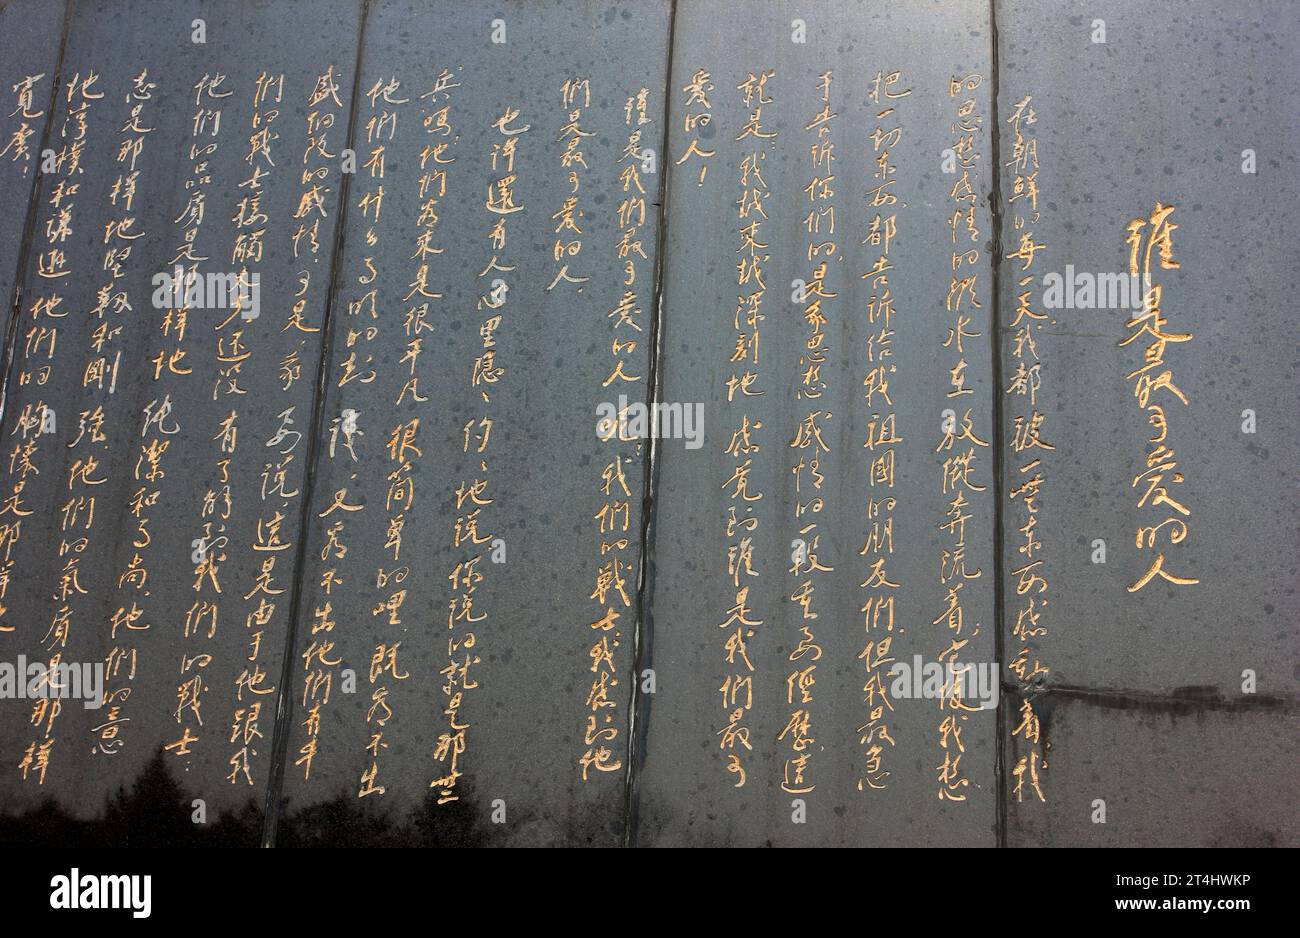 誰是最可愛的人
在朝鮮的每一天,我都被一些東西感動着,我
的思想感情的潮水,在放縱奔流着;它使我想
把一切東西,都告訴給我祖國的朋友們。但我最急
于告訴你們的,是我思想感情的一段重要經歷,這
就是:我越來越深刻地感覺到誰是我們最可
愛的人!
誰是我們最可愛的人呢?我們的戰士,我感到他
們是最可愛的人。
也許還有人心里隱、约、地說:你說的就是那些
兵嗎?他們看來是很平凡、很簡單的哩,既看不出
他們有什么高明的知識,又看不出他們有豐
的感情。可是,我要說,這是由于他跟我
們的戰士接觸太少,還没有了解到我們的戰士:
他們的品質是那樣地純潔和高尚,他們的意
志是那樣地堅韌和剛强,他們的氣質是那樣
地淳樸和謙遜,他們的胸懷是那樣地
寬廣!
alamy
Image ID: 2T4HWKP
www.alamy.com